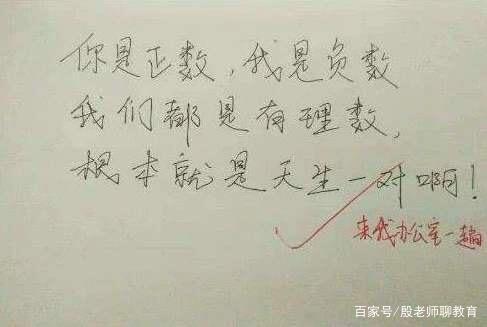 你是正数，我是负数
我们都是有理数，
根本就是天生一对啊！
来我办公室一趟
百家号/殷老师聊教育